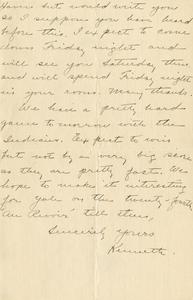 Hank but would write you
so I suppose you have heard
before this. I expect to come
down Friday night and
will see you Saturday then
and will spend Friday night
in your room. Many thanks.
We have a pretty hard
game to-morrow with the
Indians. Expect to win
but not by a very big score
as they are pretty fast. We
hope to make it interesting
for Yale on the twenty-fourth
"Au Revoir" till then,
Sincerely yours
Kenneth.